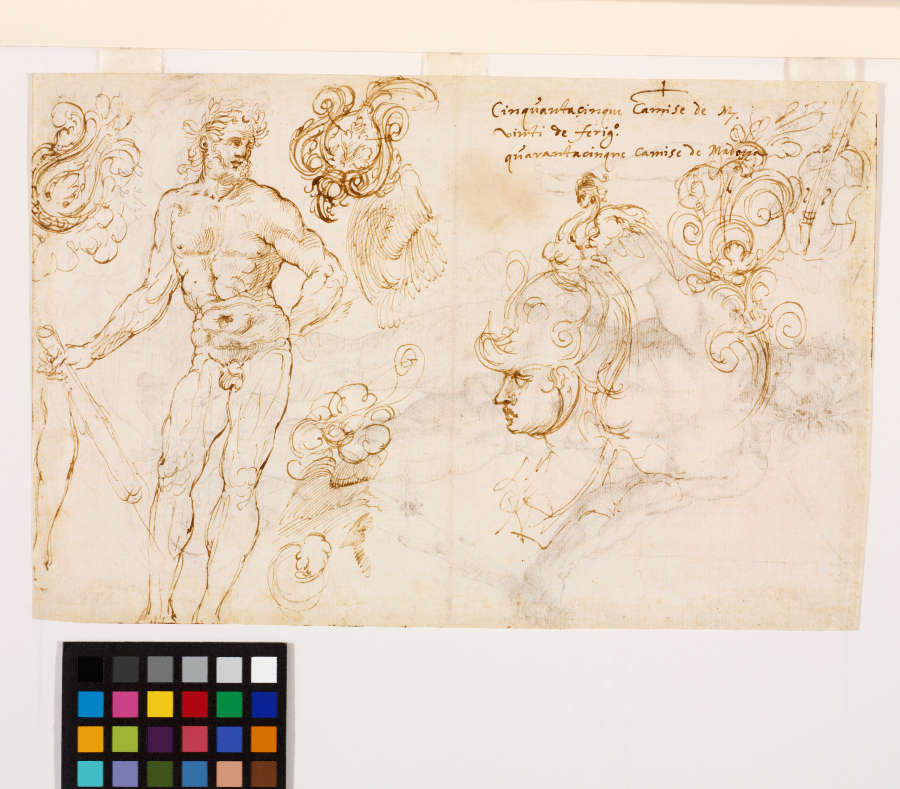 Cinquantacinque Camise de M.
vinti de ferigo.
quarantacinque Camise de Madona